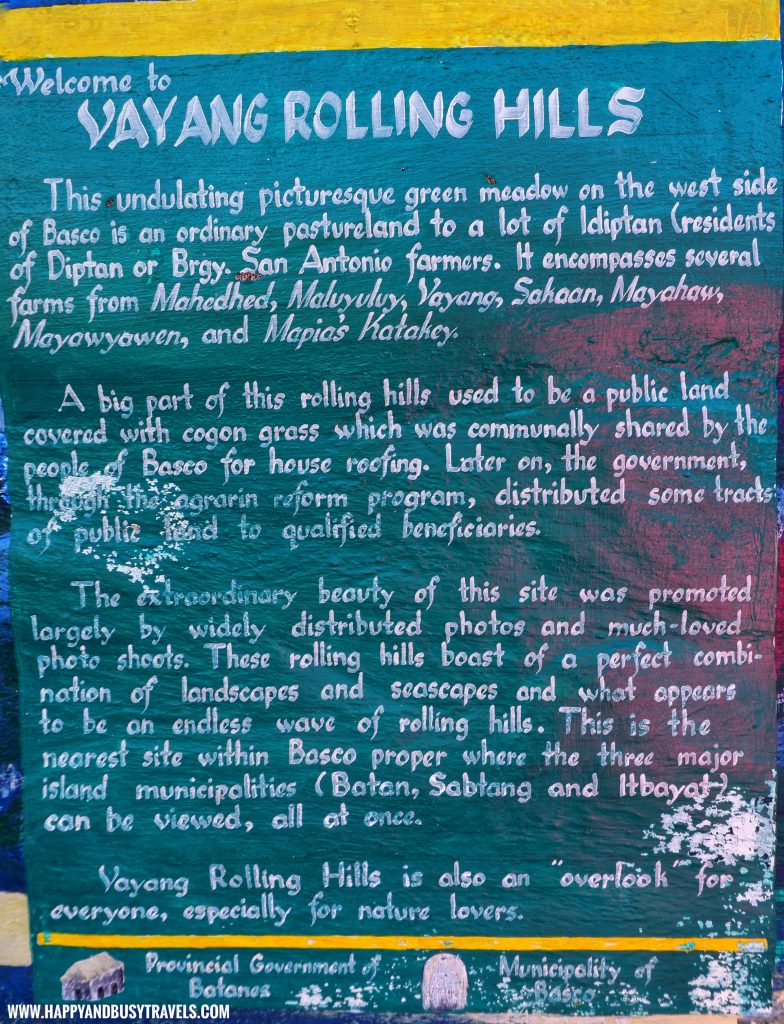 Welcome to
VAYANG ROLLING HILLS
This undulating picturesque green meadow on the west side
of Basco is an ordinary pastureland to a lot of Idiptan (residents
of Diptan or Brgy. San Antonio farmers. It encompasses several
farms from Mahedhed, Maluyuluy, Vayang, Sakaan, Mayahaw,
Mayawyawen, and Mapia's Katakey.
A big part of this rolling hills used to be a public land
covered with cogon grass which was communally shared by the
people of Basco for house roofing. Later on, the government,
through the agrarin reform program, distributed some tracts
of public land to qualified beneficiaries.
The extraordinary beauty of this site was promoted
largely by widely distributed photos and much-loved
photo shoots. These rolling hills boast of a perfect combi-
nation of landscapes and seascapes and what appears
to be an endless wave of rolling hills. This is the
nearest site within Basco proper where the three major
island municipalities (Batan, Sabtang and Itbayat)
can be viewed, all at once.
Vayang Rolling Hills is also an "overlook" for
everyone, especially for nature lovers.
Provincial Government of
Batanes
Municipality of
Basco
WWW.HAPPYANDBUSYTRAVELS.COM